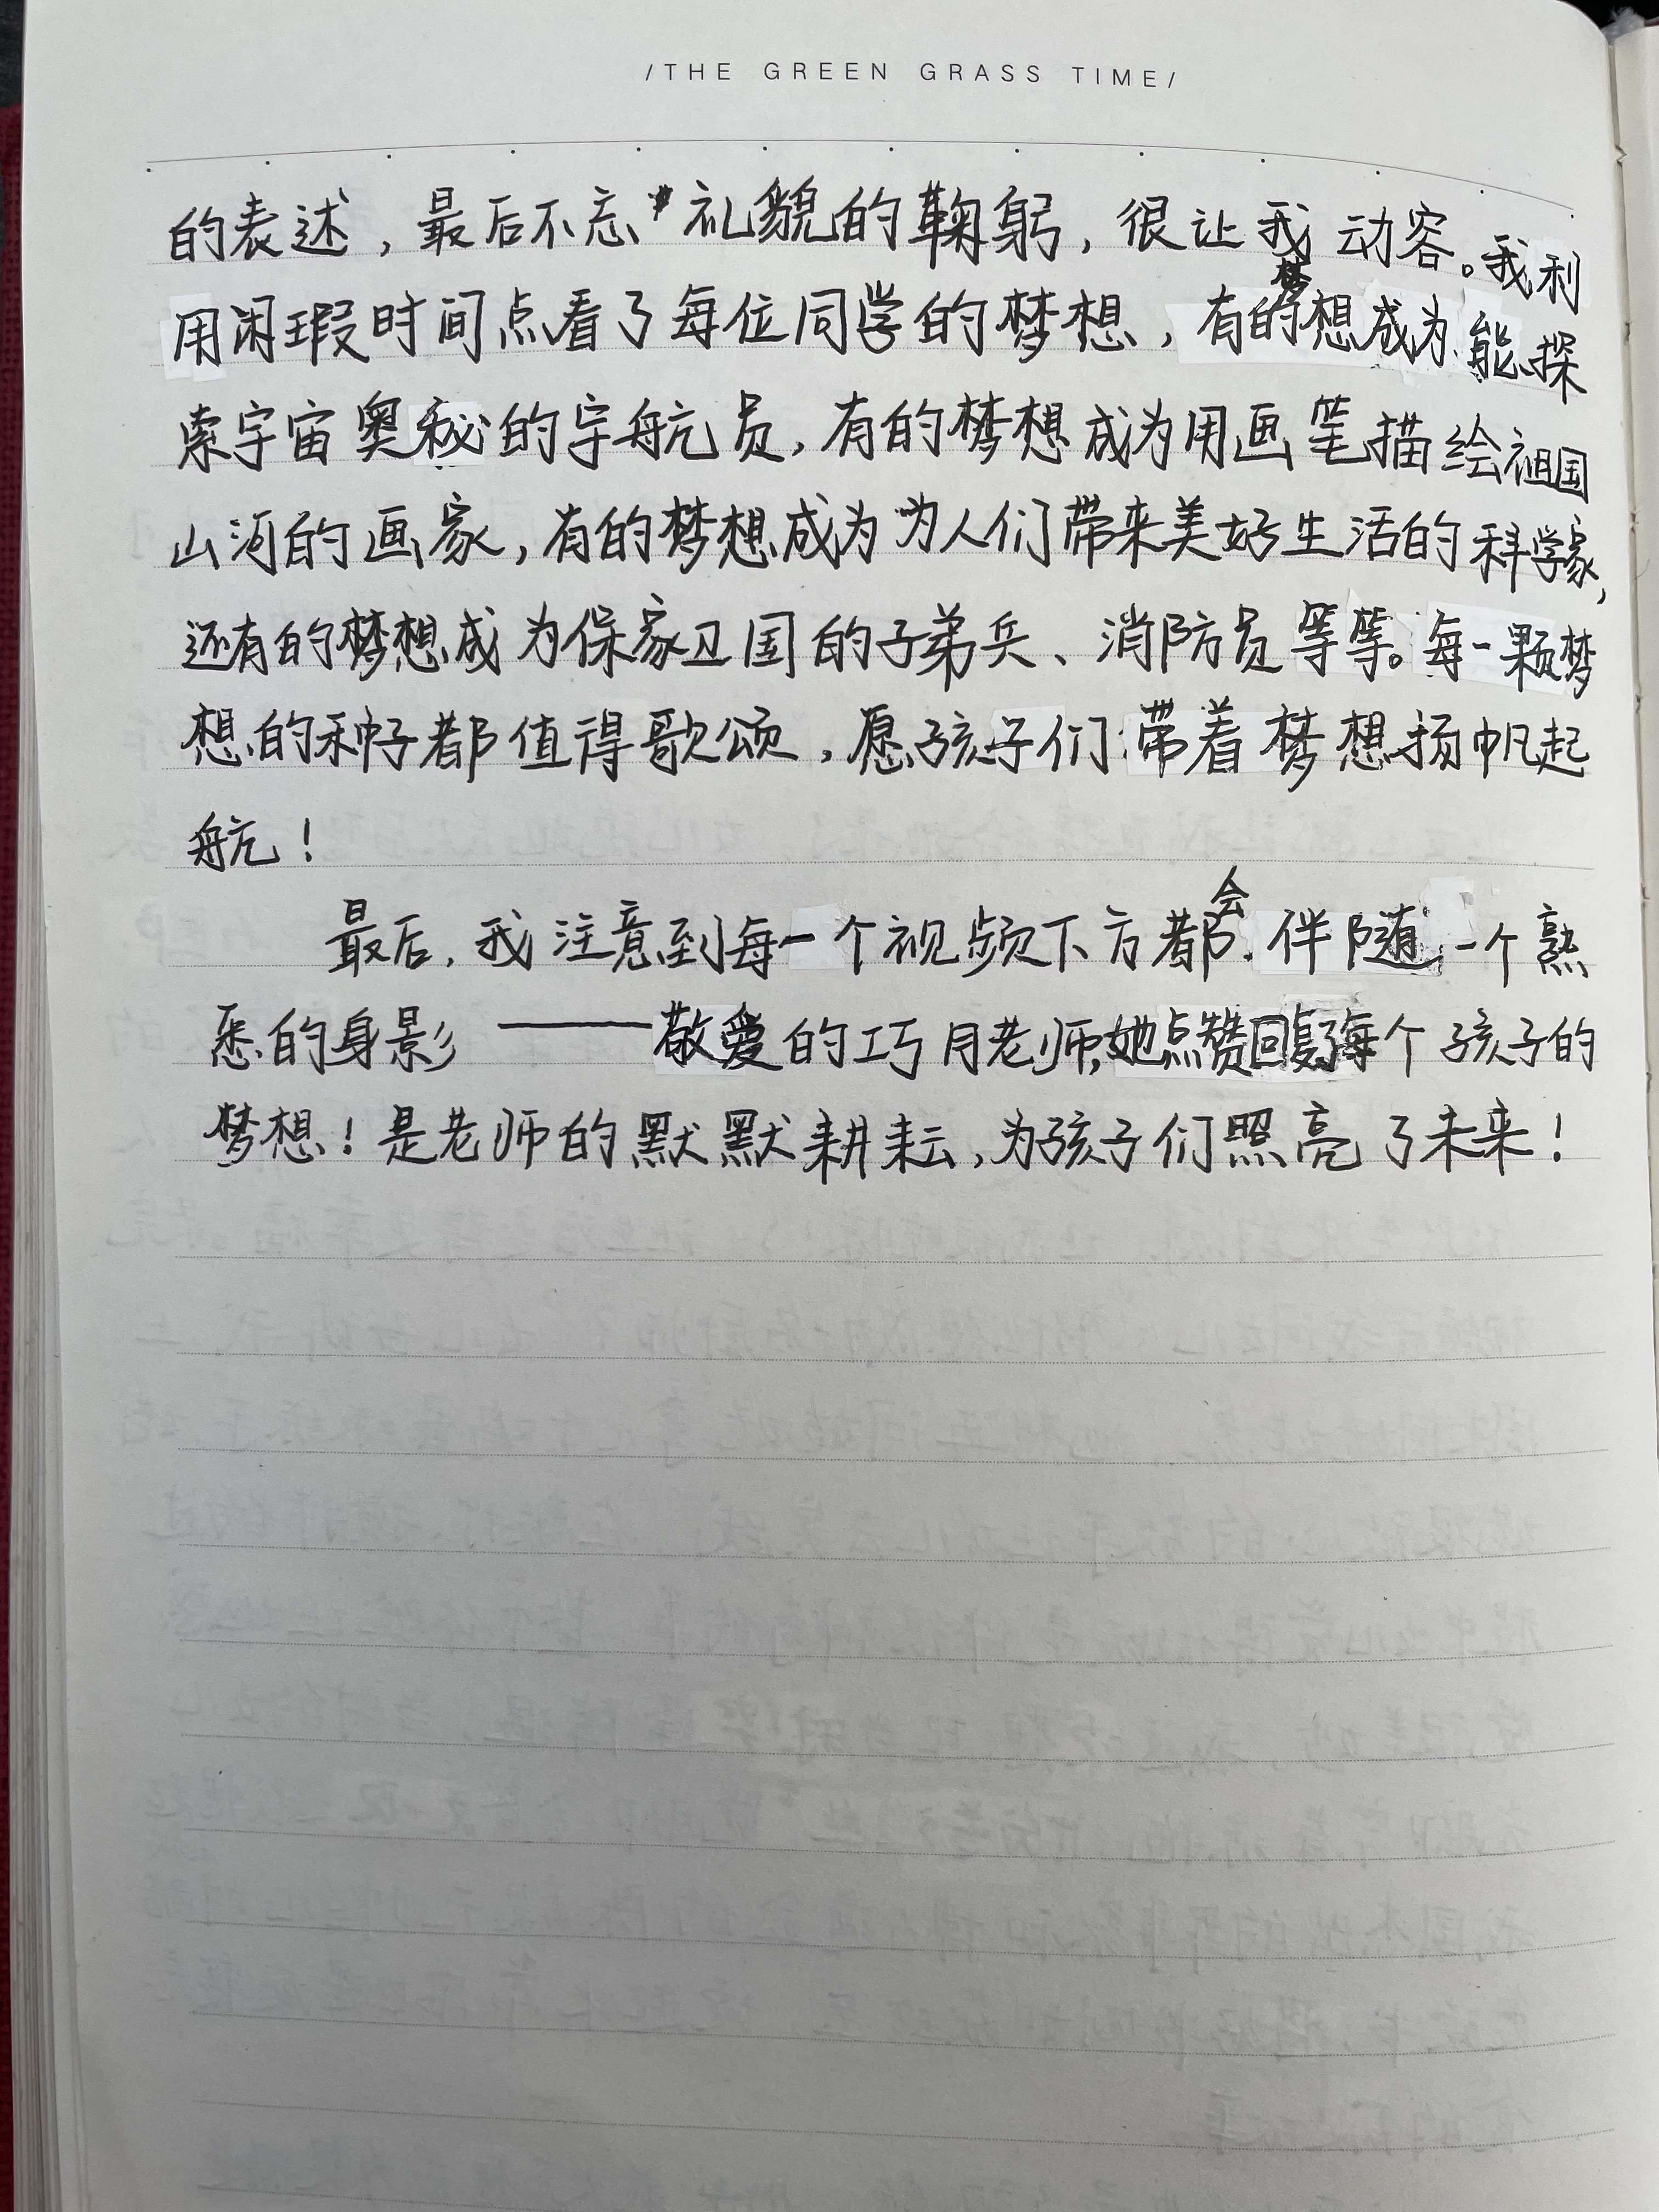 /THE GREEN GRASS TIME/
的表述，最后不忘礼貌的鞠躬，很让我动容。我利
用闲瑕时间点看了每位同学的梦想，有的梦想成为能探
索宇宙奥秘的宇航员，有的梦想成为用画笔描绘祖国
山河的画家，有的梦想成为为人们带来美好生活的科学家，
还有的梦想成为保家卫国的子弟兵、消防员等等。每一颗梦
想的种子都值得歌颂，愿孩子们带着梦想扬帆起
航！
最后，我注意到每一个视频下方都会伴随一个熟
悉的身影——敬爱的巧月老师，她点赞回复了每个孩子的
梦想！是老师的默默耕耘，为孩子们照亮了未来！